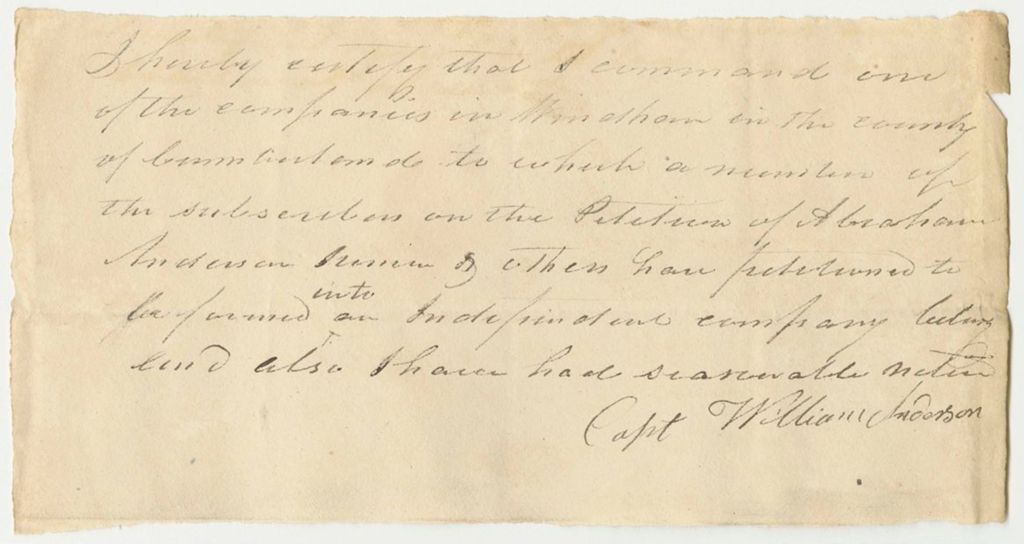 I hereby certify that I command one
of the companies in Windham in the county
of Cumberland to which a number of
the subscribers on the Petition of Abraham
Anderson Junior & others have petitioned to
be formed into an Independent company belong
and also I have had seasonable notice
Capt William Anderson